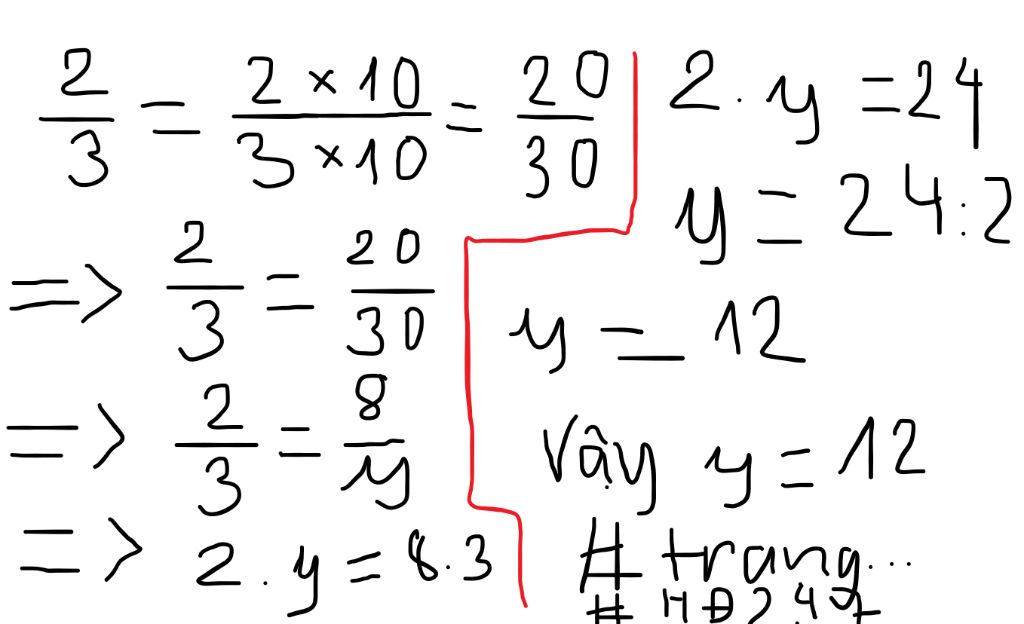 2/3 = 2 × 10 / 3 × 10 = 20/30
=> 2/3 = 20/30
=> 2/3 = 8/y
=> 2 . y = 8.3
2 . y = 24
y = 24 : 2
y = 12
Vậy y = 12
# trang...